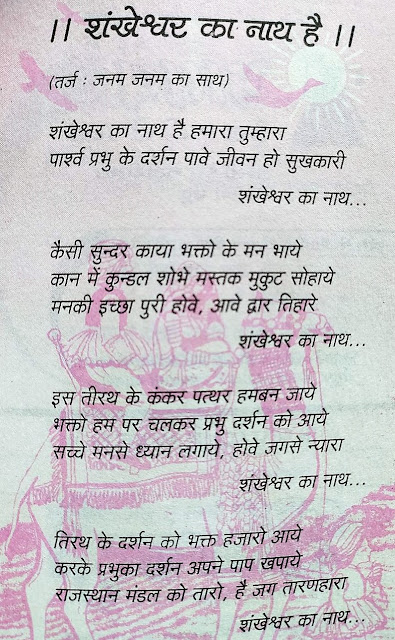 ।। शंखेश्वर का नाथ है ।।
(तर्ज : जनम जनम का साथ)
शंखेश्वर का नाथ है हमारा तुम्हारा
पार्श्व प्रभु के दर्शन पावे जीवन हो सुखकारी
शंखेश्वर का नाथ...
कैसी सुन्दर काया भक्तो के मन भाये
कान में कुन्डल शोभे मस्तक मुकुट सोहाये
मनकी इच्छा पुरी होवे, आवे द्वार तिहारे
शंखेश्वर का नाथ...
इस तीरथ के कंकर पत्थर हमबन जाये
भक्तो हम पर चलकर प्रभु दर्शन को आये
सच्चे मनसे ध्यान लगाये, होवे जगसे न्यारा
शंखेश्वर का नाथ...
तिरथ के दर्शन को भक्त हजारो आये
करके प्रभुका दर्शन अपने पाप खपाये
राजस्थान मंडल को तारो, है जग तारणहारा
शंखेश्वर का नाथ...